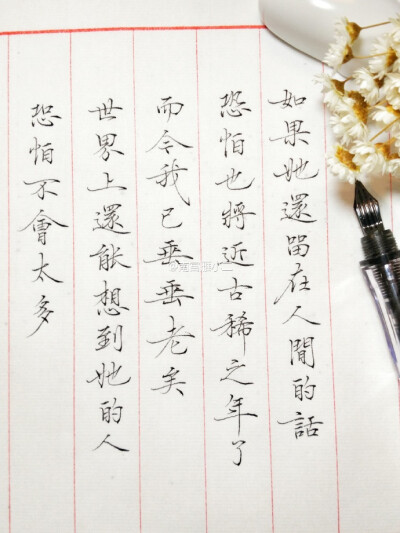 如果她還留在人間的話
恐怕也將近古稀之年了
而今我已垂垂老矣
世界上還能想到她的人
恐怕不會太多